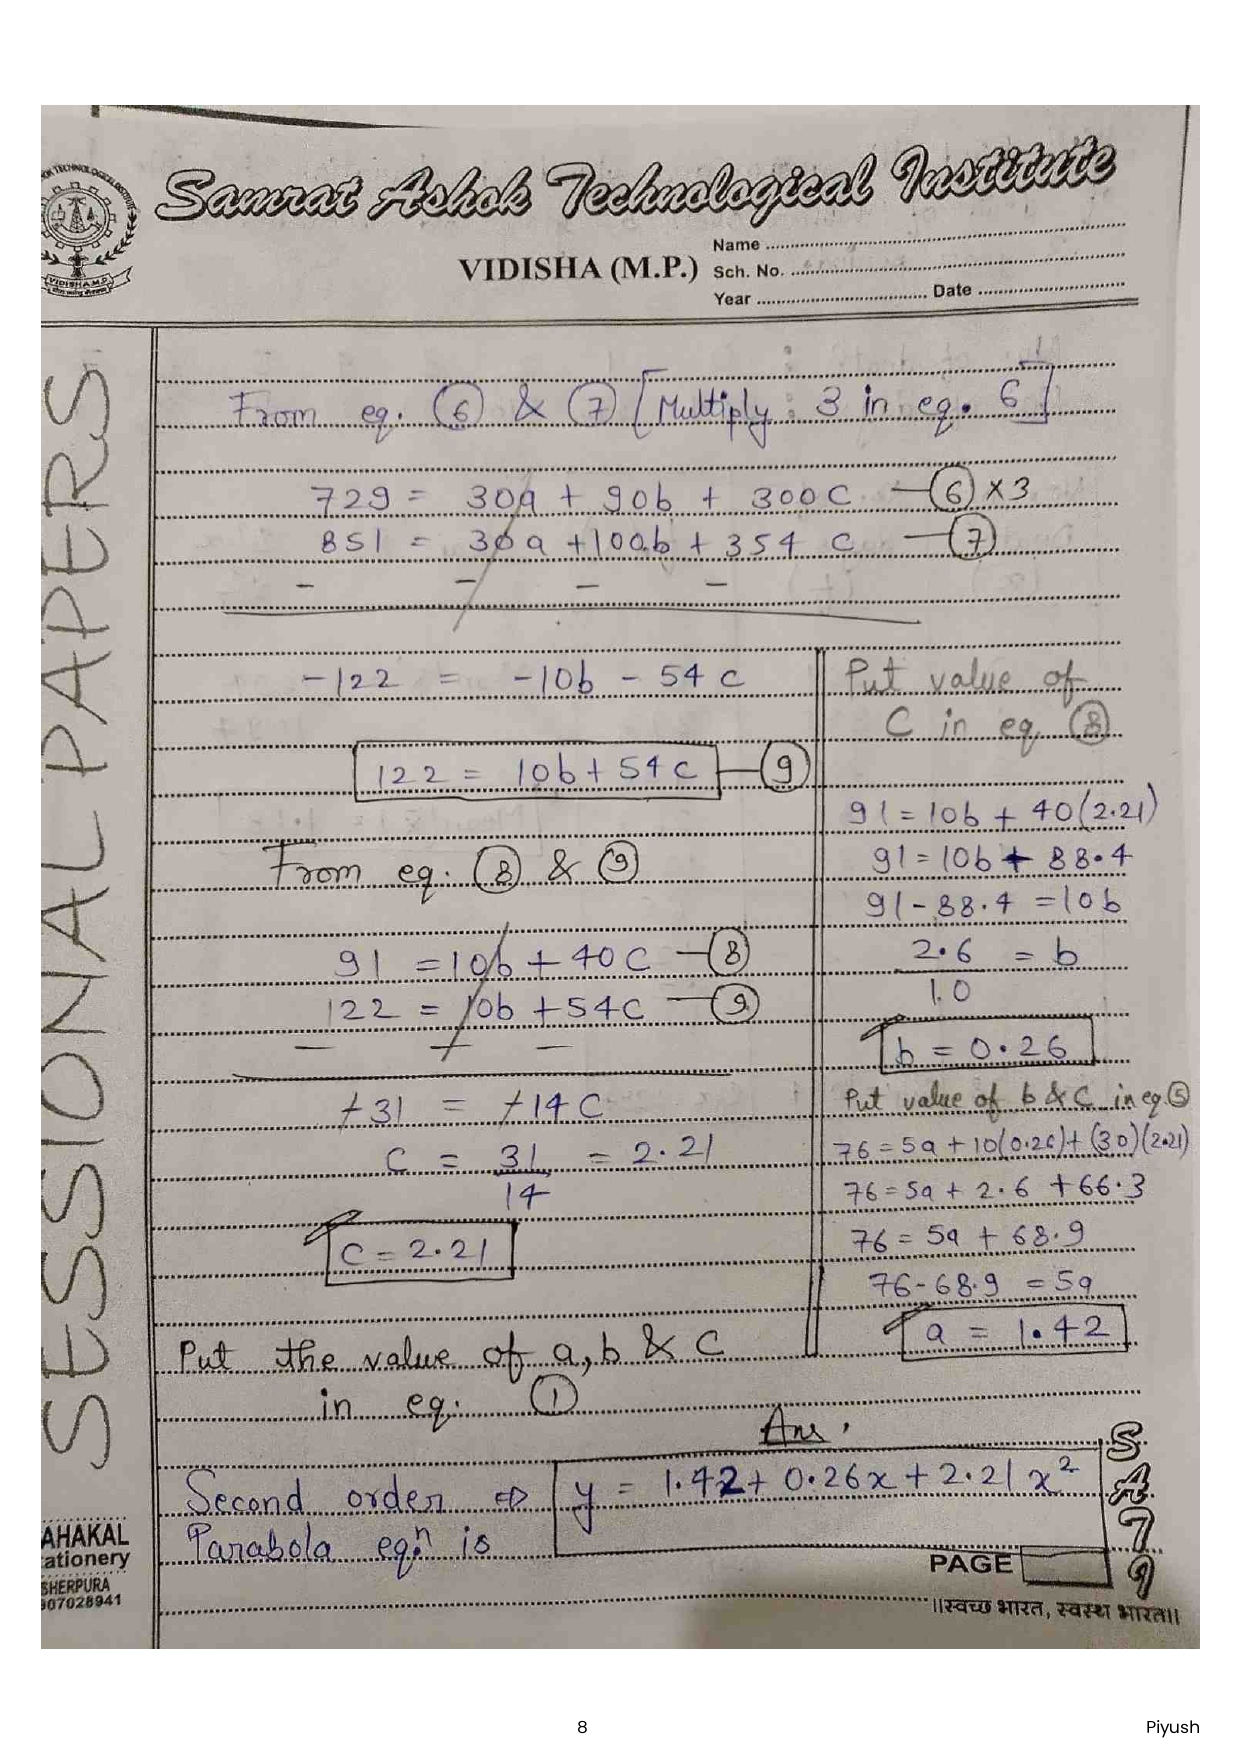 Samrat Ashok Technological Institute
VIDISHA (M.P.)
Name
Sch. No.
Year Date
SESSIONAL PAPERS
From eq. (6) & (7) [Multiply : 3 in eq. 6]
729 = 30a + 90b + 300c — (6) × 3
851 = 30a + 100b + 354 c — (7)
− − − −
-122 = -10b - 54 c
122 = 10b + 54 c — (9)
From eq. (8) & (9)
91 = 10b + 40c — (8)
122 = 10b + 54c — (9)
− − −
+31 = +14c
c = 31/14 = 2.21
c = 2.21
Put value of
c in eq (8)
91 = 10b + 40(2.21)
91 = 10b + 88.4
91 - 88.4 = 10b
2.6/10 = b
b = 0.26
Put value of b & c in eq (5)
76 = 5a + 10(0.26) + (30)(2.21)
76 = 5a + 2.6 + 66.3
76 = 5a + 68.9
76 - 68.9 = 5a
a = 1.42
Put the value of a, b & c
in eq. (1)
Ans.
Second order ⇨ y = 1.42 + 0.26x + 2.21 x²
Parabola eqⁿ is
SATI
PAGE
AHAKAL
ationery
SHERPURA
907028941
॥स्वच्छ भारत, स्वस्थ भारत॥
8
Piyush